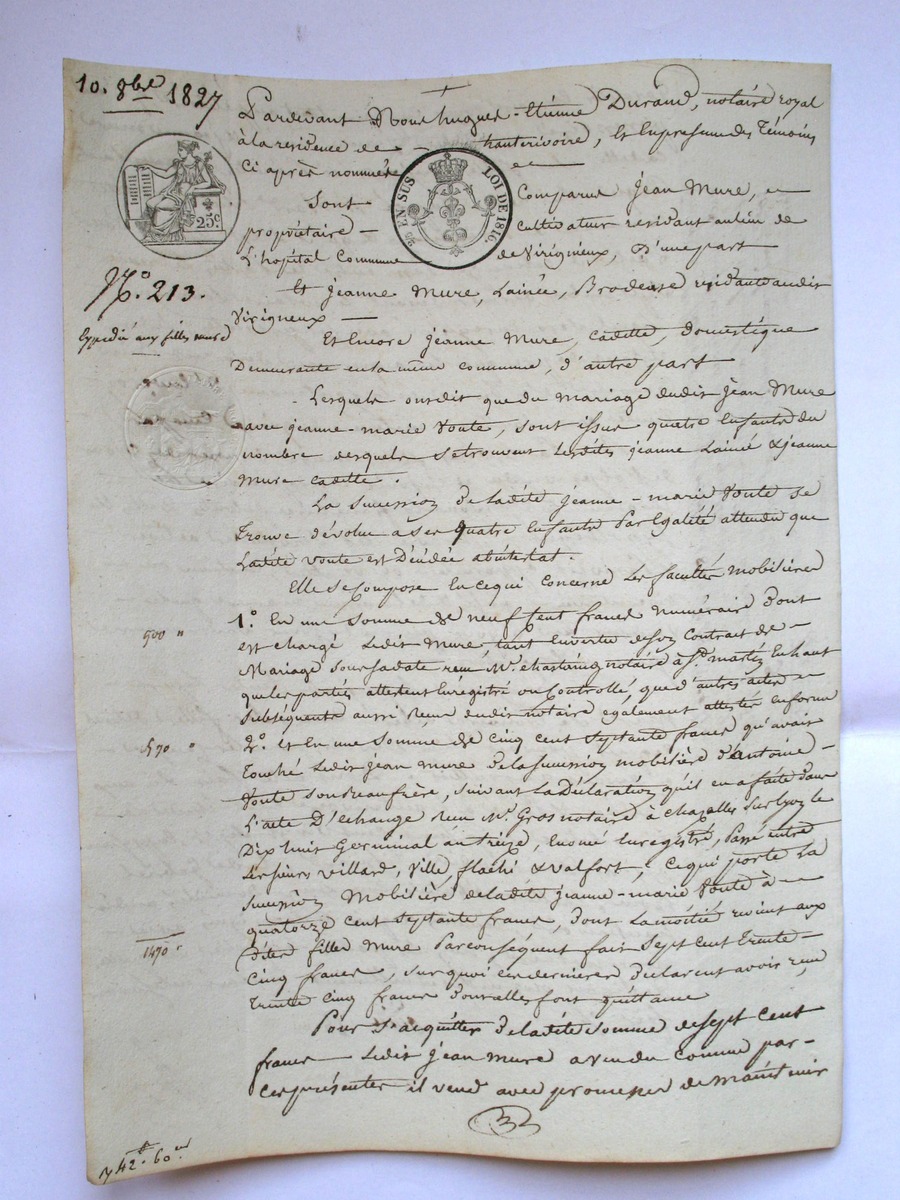 10. 8bre 1827
Pardevant Nous hugues-Etienne Durand, notaire royal
à la residence de hauterivoire, Et En presence des Témoins
Ci après nommés
25c
EN SUS LOI DE 1816.
Sont Comparus jean Mure,
propriétaire cultivateur residant au lieu de
L'hopital Commune de Virigneux, D'une part
N.o 213.
Expédié aux filles mure
Et jeanne Mure, Lainée, Brodeuse residante audit
Virigneux
Et Encore jeanne Mure, Cadette, domestique
Demeurante en la même commune, d'autre part
Lesquels ont dit que du mariage dudit jean Mure
avec jeanne-marie Voute, sont issus quatre Enfants du
nombre desquels se trouvent lesdites jeanne Lainée & jeanne
Mure cadette.
La succession de Ladite jeanne-marie Voute se
Trouve dévolue a ses quatre Enfants Par Egalité attendu que
Ladite Voute est Décédée abintestat.
Elle se Compose En ce qui concerne Les facultés Mobilières
900 "
1.o En une somme de neuf Cent francs numéraire Dont
est chargé Ledit Mure, tant En vertu de son Contrat de
Mariage sous sa date reçu Me. chastaing notaire à St. martin En haut
que les parties attestent Enregistré ou Controllé, que d'autres actes
subséquents aussi reçus dudit notaire également attestés En forme
570 "
2.o et En une somme de cinq cent septante francs qu'avait
Touché Ledit jean mure de la succession mobilière d'antoine
Voute son Beau frère, suivant La Déclaration qu'il en a faite dans
L'acte D'echange reçu Me. Gros notaire à chazelles sur lyon le
Dix huit Germinal an treize, Enoncé Enregistré, Passé entre
Les sieurs villard, ville, flachi & valfort; Ce qui porte La
succession Mobilière de ladite jeanne-marie Voute à
1470 "
quatorze cent septante francs, dont La moitié revient aux
dites filles Mure Par conséquent fait sept cent trente
cinq francs, sur quoi ces dernieres Déclarent avoir reçu
Trente cinq francs Dont elles font quittance
Pour s'acquitter de ladite somme de sept cent
francs Ledit jean mure a vendu comme par
ces présentes il vend avec promesses de maintenir